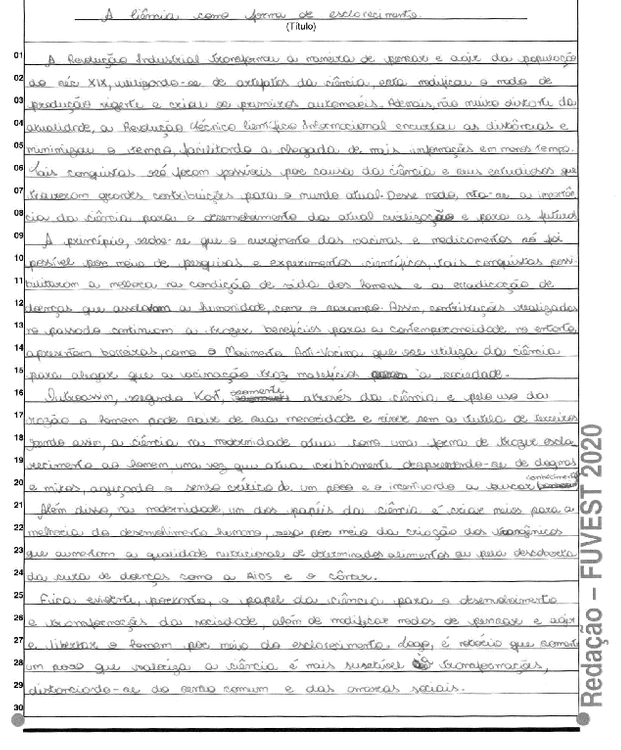 A ciência como forma de esclarecimento.
(Título)
01 A Revolução Industrial transformou a maneira de pensar e agir da população
02 do séc XIX, utilizando-se de artefatos da ciência, esta modificou o modo de
03 produção vigente e criou os primeiros automóveis. Ademais, não muito distante da
04 atualidade, a Revolução técnico Científica Internacional encurtou as distâncias e
05 minimizou o tempo, facilitando a chegada de mais informações em menos tempo.
06 Tais conquistas só foram possíveis por causa da ciência e seus estudiosos que
07 trouxeram grandes contribuições para o mundo atual. Desse modo, nota-se a importân
08 cia da ciência para o desenvolvimento da atual civilização e para as futuras
09 A princípio, sabe-se que o surgimento das vacinas e medicamentos só foi
10 possível por meio de pesquisas e experimentos científicos, tais conquistas possi
11 bilitaram a melhora na condição de vida dos homens e a erradicação de
12 doenças que assolavam a humanidade, como o sarampo. Assim, contribuições realizadas
13 no passado continuam a trazer benefícios para a contemporaneidade, no entanto,
14 apresentam barreiras, como o Movimento Anti-Vacina que se utiliza da ciência
15 para alegar que a vacinação traz malefícios à sociedade.
16 Outrossim, segundo Kant, somente através da ciência e pelo uso da
17 razão o homem pode sair de sua menoridade e viver sem a tutela de terceiros
18 sendo assim, a ciência na modernidade atua como uma forma de trazer escla
19 recimento ao homem, uma vez que atua criticamente desprendendo-se de dogmas
20 e mitos, aguçando o senso crítico de um povo e o incentivando a buscar conhecimento
21 Além disso, na modernidade um dos papéis da ciência é criar meios para a
22 melhoria do desenvolvimento humano, seja por meio da criação dos transgênicos
23 que aumentam a qualidade nutricional de determinados alimentos ou pela descoberta
24 da cura de doenças como a AIDS e o câncer.
25 Fica evidente, portanto, o papel da ciência para o desenvolvimento
26 e transformações da sociedade, além de modificar modos de pensar e agir
27 e libertar o homem por meio do esclarecimento. Logo, é notório que somente
28 um povo que valoriza a ciência é mais suscetível transformações,
29 distanciando-se do senso comum e das amarras sociais.
30
Redação – FUVEST 2020